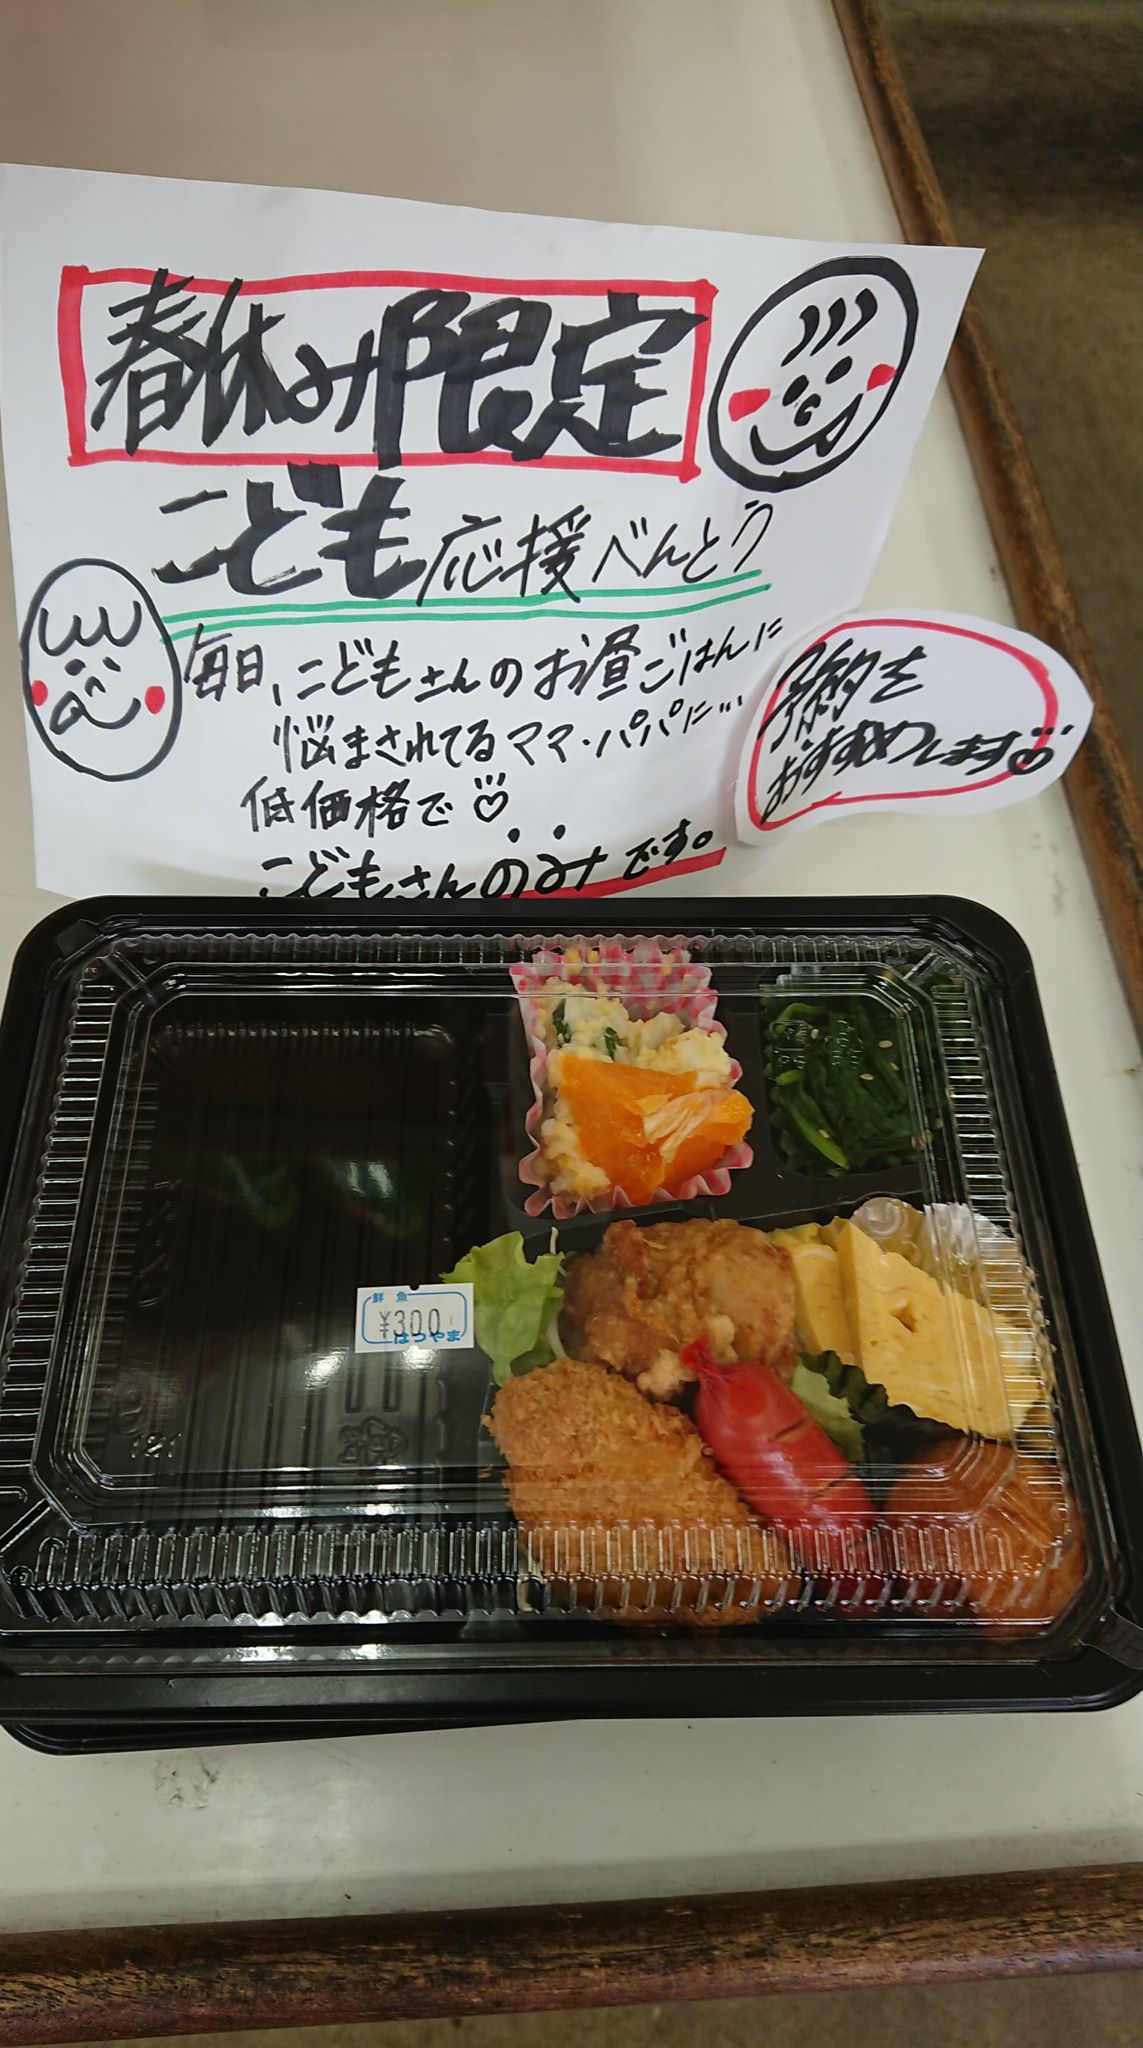 春休み限定
こども応援べんとう
毎日、こどもさんのお昼ごはんに
悩まされてるママ・パパに…
低価格で♡
こどもさんのみです。
予約を
おすすめします♡
鮮魚
¥300
はつやま